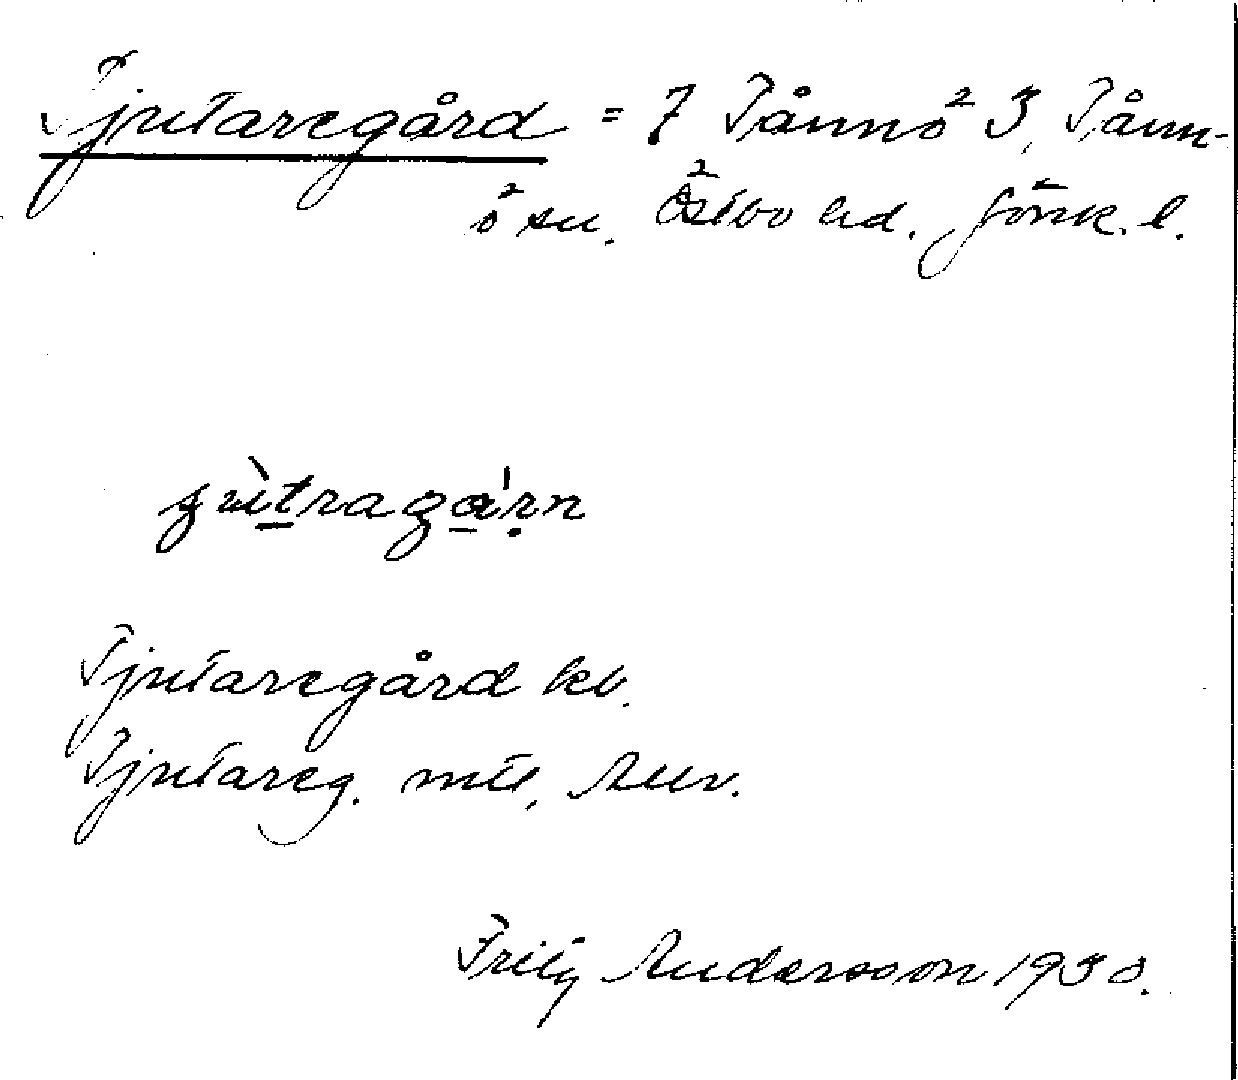 Tjutaregård = 7 Tånnö 3, Tånn-
ö sn. Östbo hd. Jönk. l.
Tjutaregård kv.
Tjutareg. mtl,
Fritz Andersson 1930.